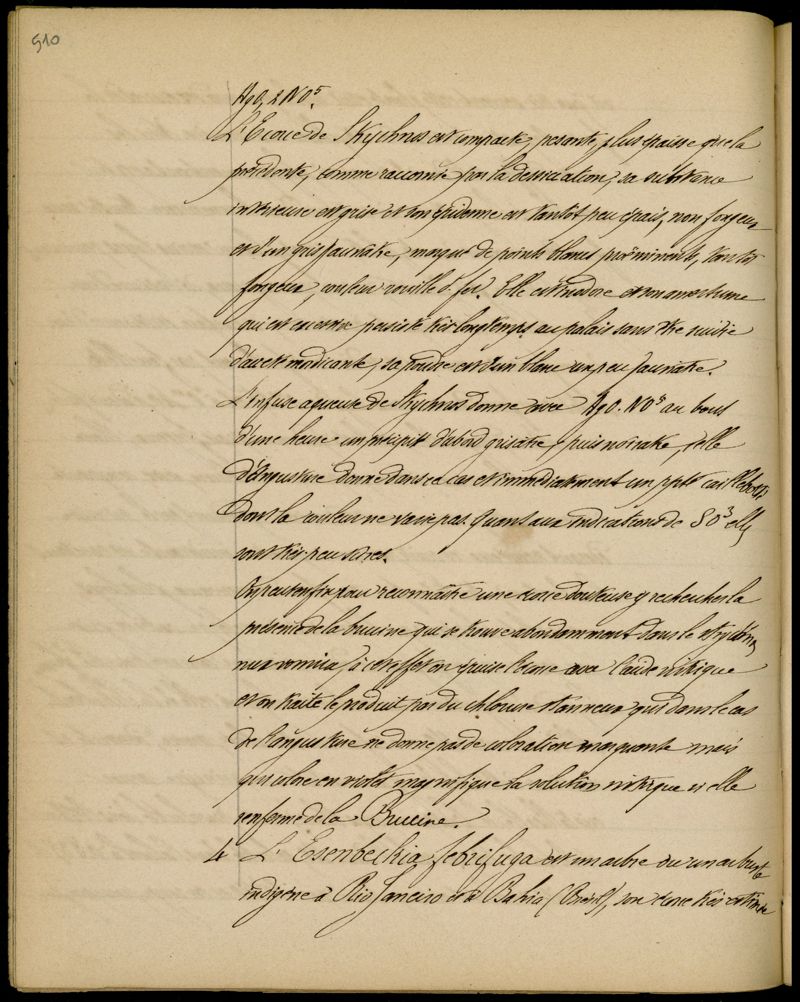 510
HgO, 2 NO⁵.
L'Ecorce de Strychnos est compacte, pesante, plus épaisse que la
précédente, comme racornie par la dessiccation, sa substance
intérieure est grise et son épiderme est tantôt peu épais, non fongueux
et d'un gris jaunâtre, marqué de points blancs proéminents, tantôt
fongeux, couleur rouille d. fer. Elle est inodore et son amertume
qui est excessive persiste très longtemps au palais sans être suivie
d'âcreté mordicante, sa poudre est d'un blanc un peu jaunâtre.
L'infusé aqueux de Strychnos donne avec HgO. NO⁵ au bout
d'une heure un précipité d'abord grisâtre, puis noirâtre, celle
d'Angusture donne dans ce cas et immédiatement un ppté caillebotté
dont la couleur ne varie pas. Quant aux indications de SO³ elles
sont très peu sûres.
On peut enfin pour reconnaître une écorce douteuse y rechercher la
présence de la brucine qui se trouve abondamment dans le strychnos
nux vomica, à cet effet on épuise l'écorce avec l'acide nitrique
et on traite le produit par du chlorure stanneux qui dans le cas
de l'angusture ne donne pas de coloration marquante mais
qui colore en violet magnifique la solution nitrique si elle
renferme de la Brucine.
4 L'Esenbeckia febrifuga est un arbre ou un arbuste
indigène à Rio Janeiro et à Bahia (Brésil), son écorce très estimée